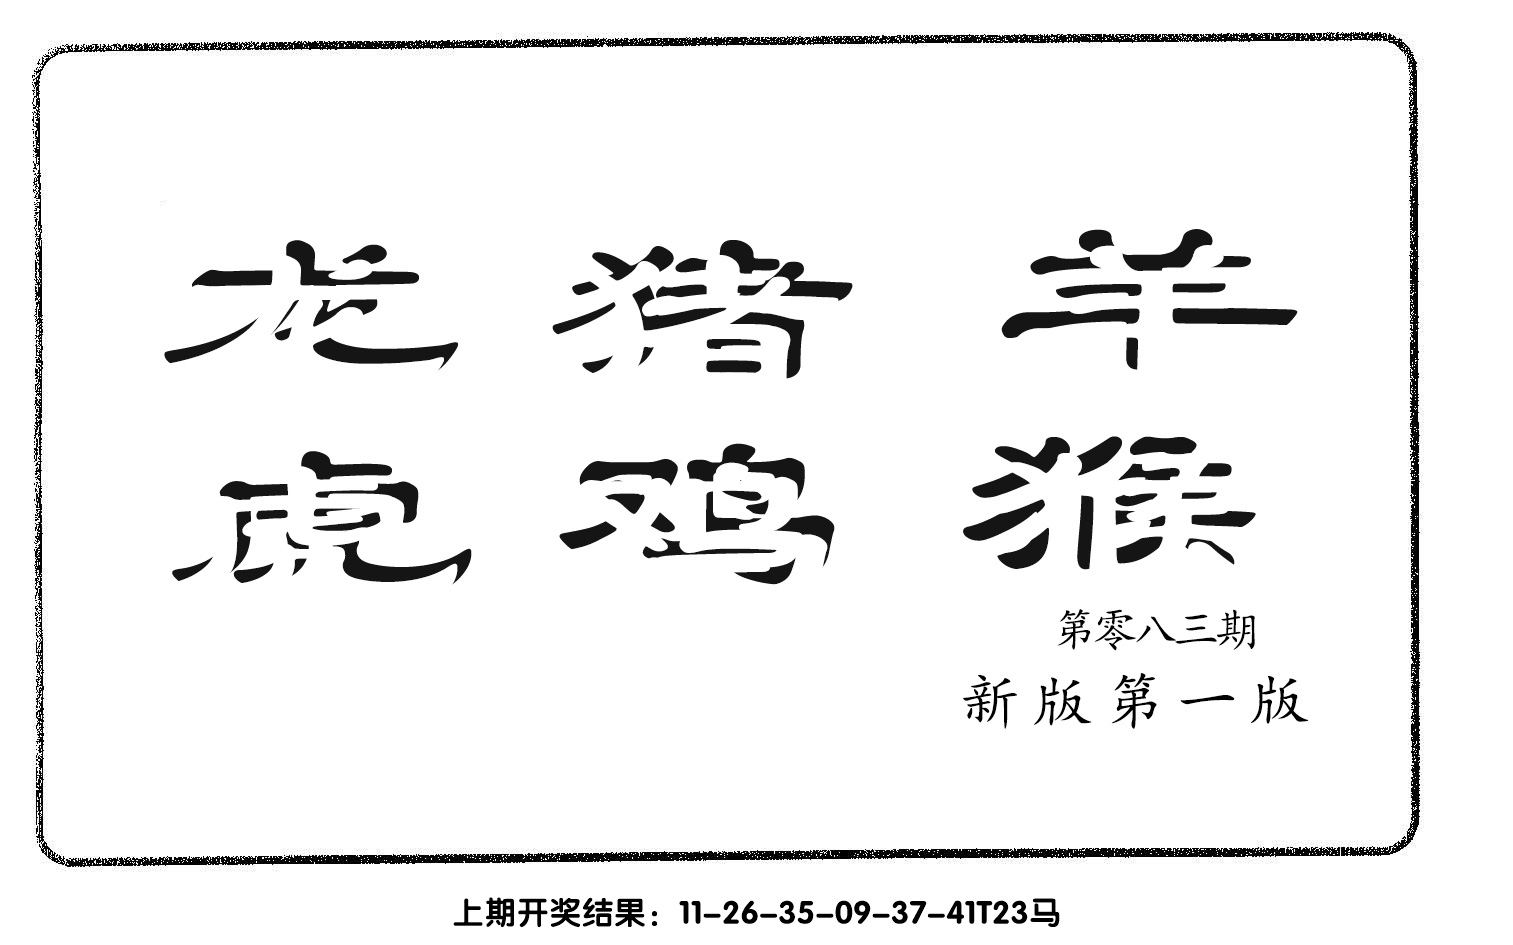 龙 猪 羊
虎 鸡 猴
第零八三期
新版第一版
上期开奖结果：11-26-35-09-37-41T23马